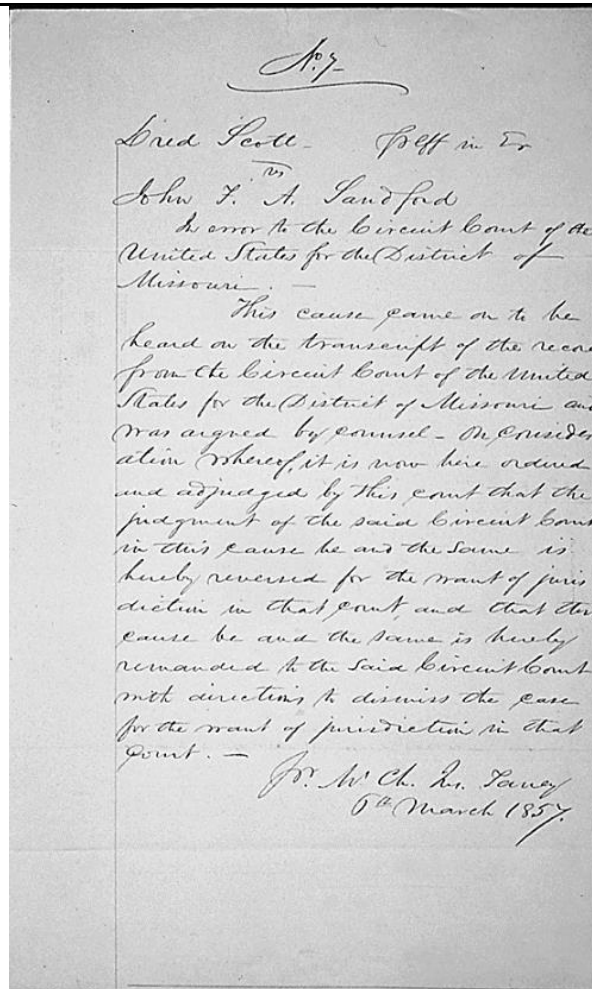 No. 7
Dred Scott - Plff in Er
vs
John F. A. Sandford
In error to the Circuit Court of the
United States for the District of
Missouri. —
This cause came on to be
heard on the transcript of the recor
from the Circuit Court of the United
States for the District of Missouri and
was argued by counsel - On consider
ation whereof, it is now here ordered
and adjudged by this court that the
judgment of the said Circuit Court
in this cause be and the same is
hereby reversed for the want of juris
diction in that court and that the
cause be and the same is hereby
remanded to the said Circuit Court
with directions to dismiss the case
for the want of jurisdiction in that
court. —
Pr. Mr. Ch. Jus. Taney
6th March 1857.